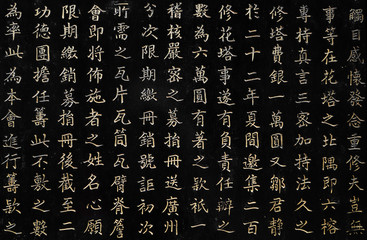 觸目感懷發念重修夫豈無
事等在花塔之北隅即六榕
尊持真言三密加持法久之
修塔費銀一萬圓又鄒君靜
於二十二年夏間邀集二百
修花塔事遂有負責任辦之
數為六萬圓有著之款祇一
稽核嚴密之募捐冊送廣州
分次限期繳冊銷號証初次
所需之瓦片瓦筒瓦臂脊簷
會即將佈施者之姓名心願
限期繳銷募捐冊後截至二
功德圓擔任籌此不敷之數
為率此為本會進行籌款之